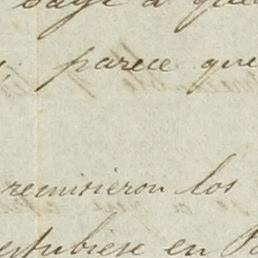 baye a que
parece que
remisieron los
estubiese en